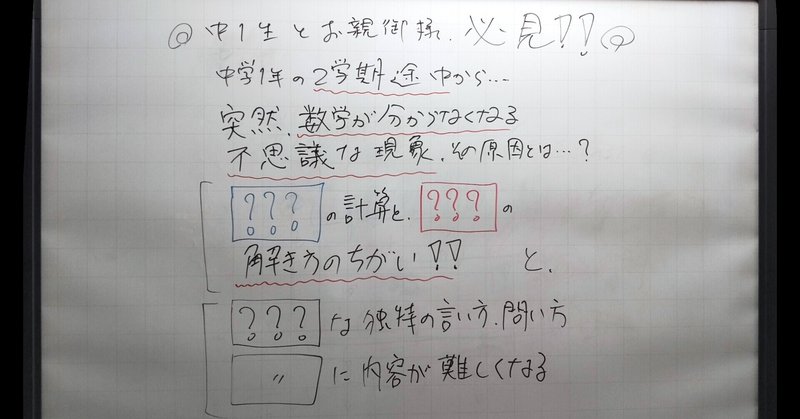 ◎中1生とお親御様、必見!!◎
中学1年の2学期途中から…
突然、数学が分からなくなる
不思議な現象、その原因とは…?
???の計算と、???の
解き方のちがい!!と、
???な独特の言い方、問い方
〃に内容が難しくなる